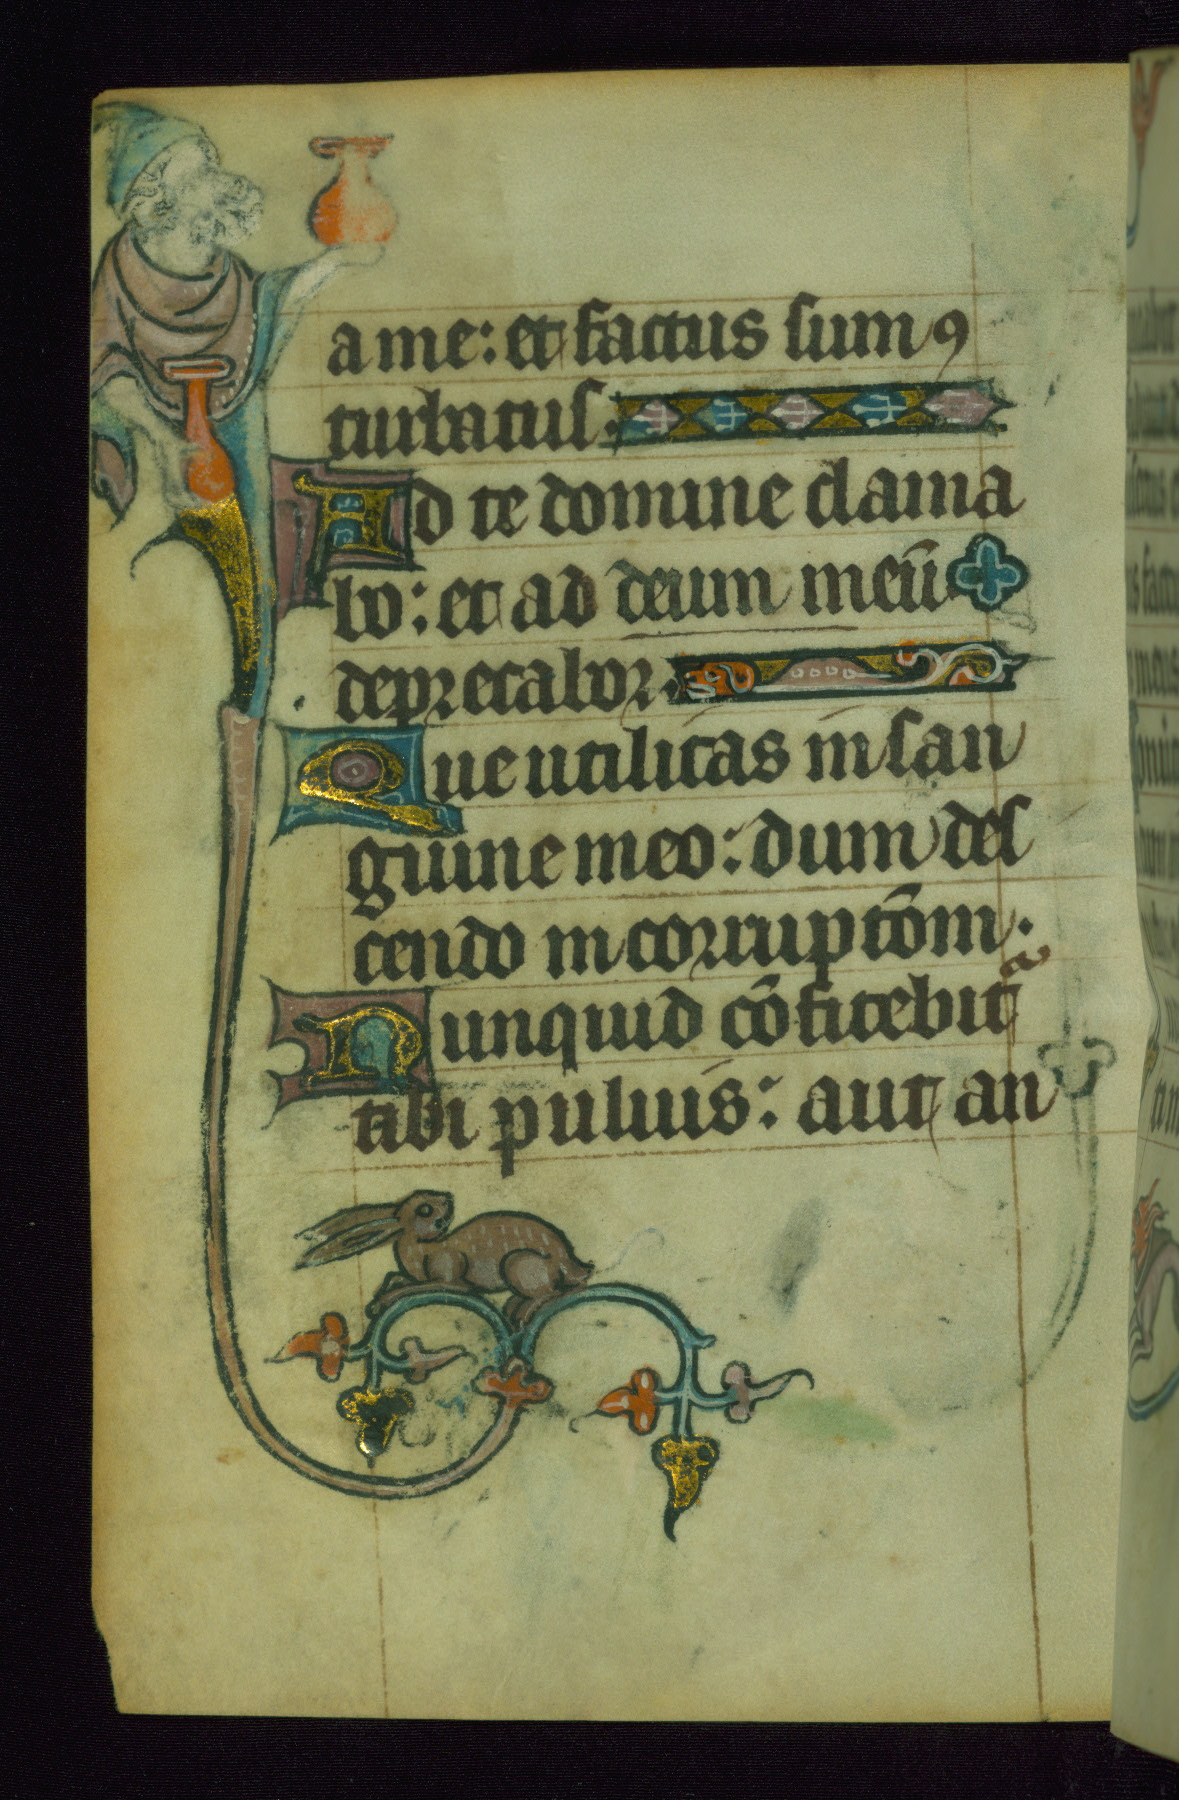 a me: et factus sum ꝯ
turbatus.
Ad te domine clama
bo: et ad deum meū
deprecabor.
Que utilitas in san
guine meo: dum des
cendo in corruptōm.
Nunquid cōfitebit᷑
tibi puluis: aut an